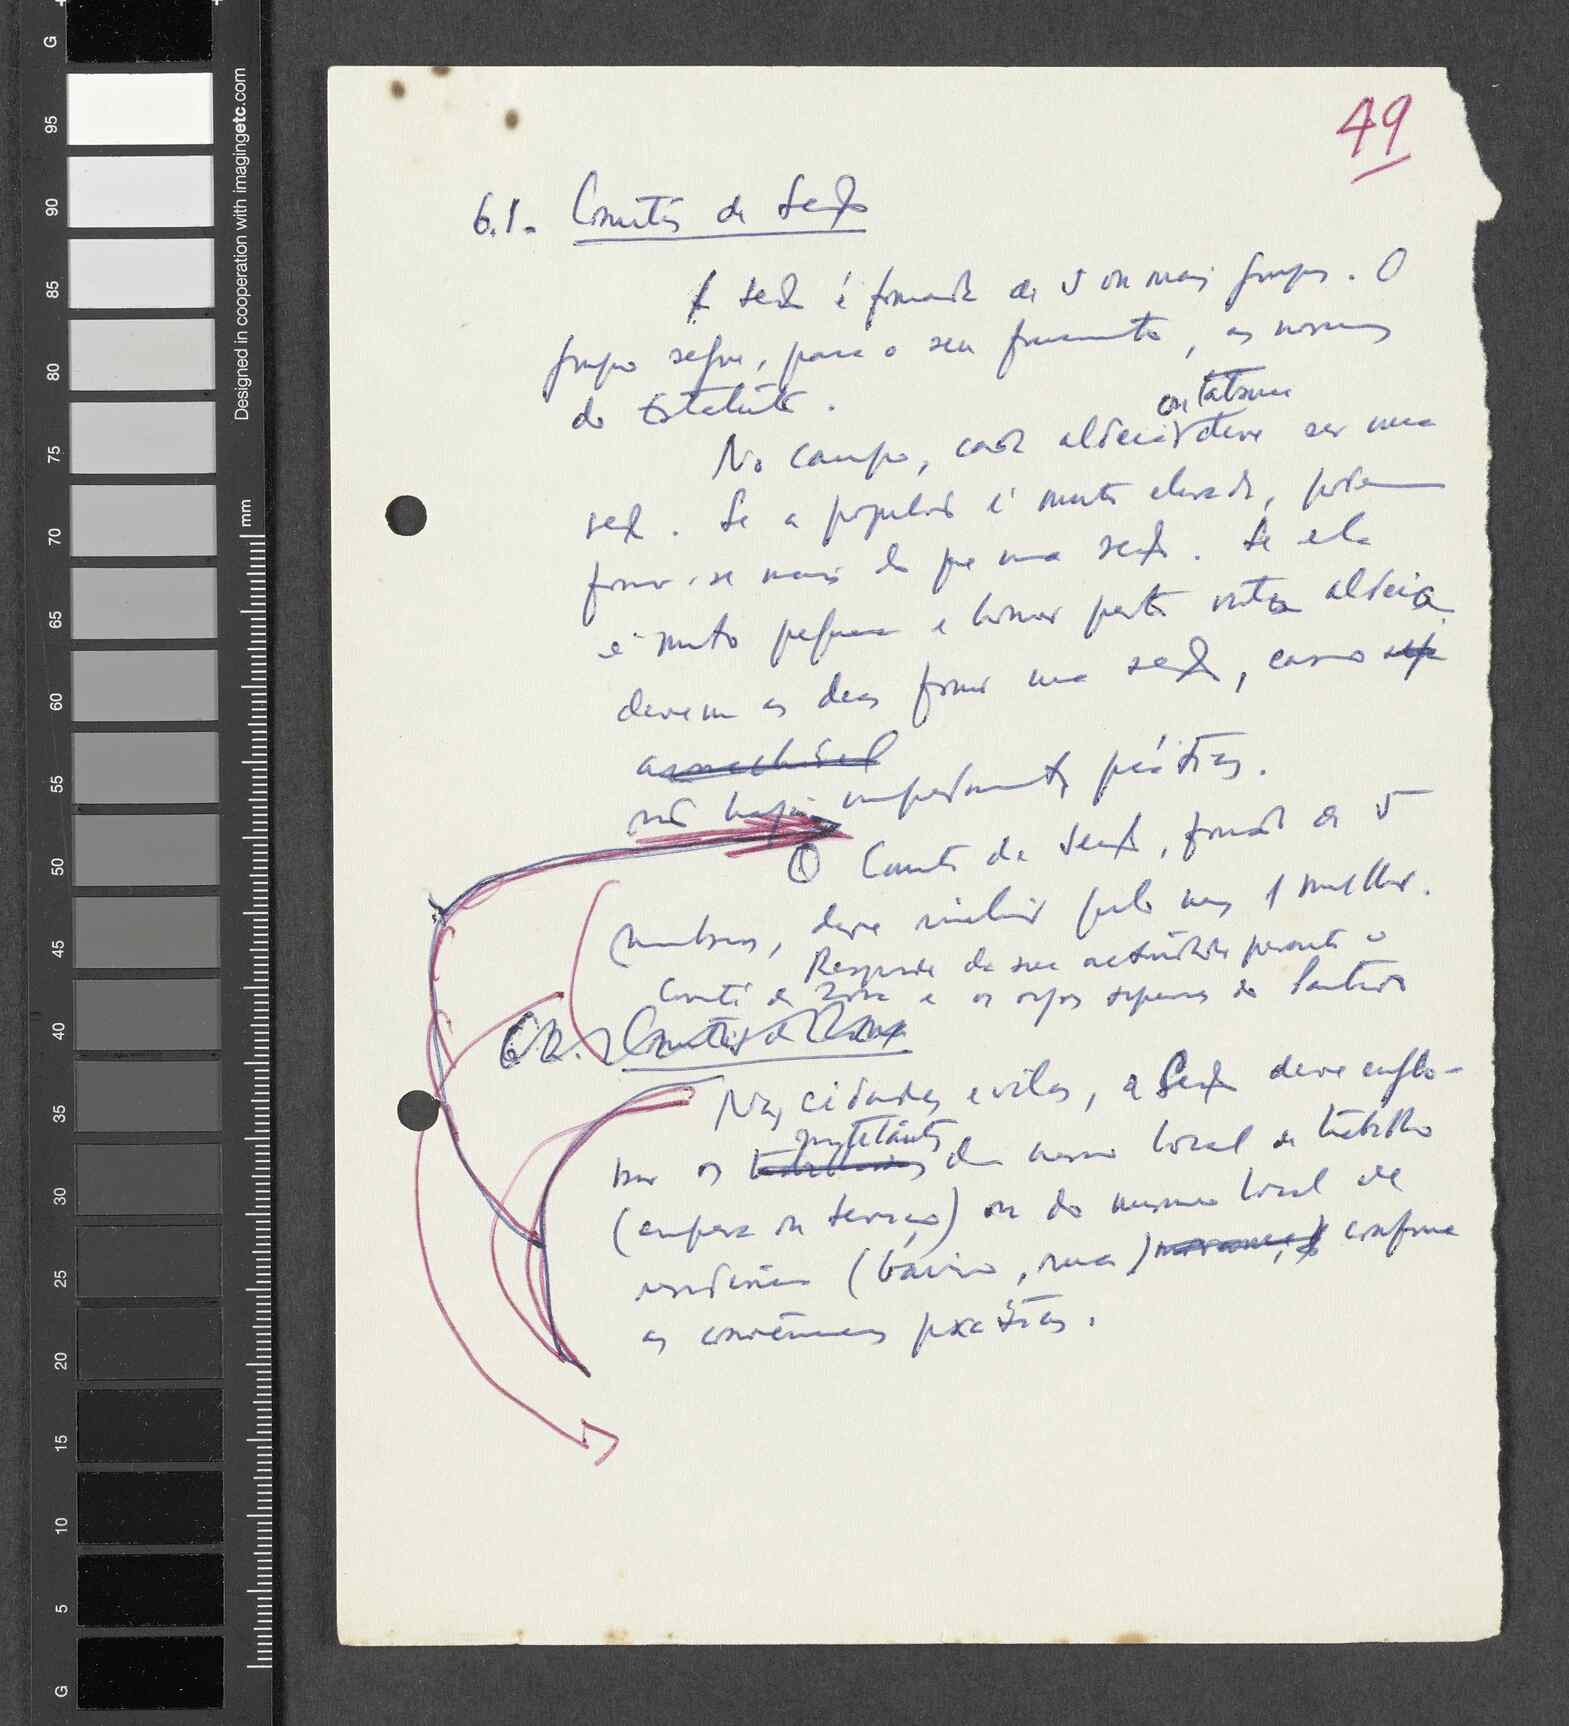 49
6.1. Comités de Secção
A secção é formada de 5 ou mais grupos. O
grupo segue, para o seu funcionamento, as normas
do Estatuto.
ou tabanca
No campo, cada aldeia deve ser uma
secção. Se a população é muito elevada, podem
formar-se mais do que uma secção. Se ela
é muito pequena e houver perto outra aldeia
devem as duas formar uma secção, caso seja
aconselhável
não haja impedimentos práticos.
O Comité de Secção, formado de 5
membros, deve incluir pelo menos 1 mulher.
Responde da sua actividade perante o
Comité de Zona e os orgãos superiores do Partido
6.2. Comités de Zona
Nas cidades e vilas, a Secção deve englo-
militantes
bar os trabalhadores dum mesmo local de trabalho
(empresa ou serviço) ou do mesmo local de
residência (bairro, rua) conforme
as conveniências práticas.
Designed in cooperation with imagingetc.com
mm
G
95
90
85
80
75
70
65
60
55
50
45
40
35
30
25
20
15
10
5
G